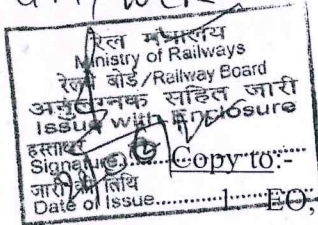 रेल मंत्रालय
Ministry of Railways
रेलवे बोर्ड/Railway Board
अनुलग्नक सहित जारी
Issue with Enclosure
हस्ताक्षर
Signature............ Copy to:-
जारी की तिथि
Date of Issue............ 1 EO,